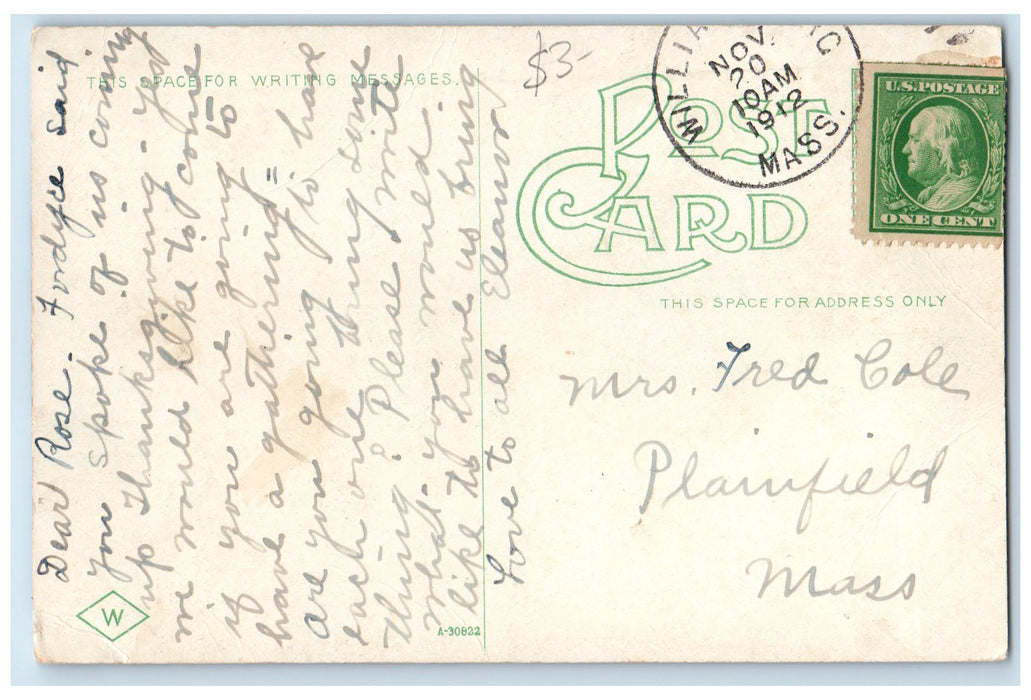 THIS SPACE FOR WRITING MESSAGES.
Dear Rose. Fordyce said
you spoke of us coming
up Thanksgiving - Yes
we would like to come
if you are going to
have a gathering =
are you going to have
each one bring some
thing? Please write
what you would
like to have us bring
Love to all Eleanor
W
A-30822
$3-
POST CARD
WILLIA
NOV.
20
10AM
1912
MASS.
U.S. POSTAGE
ONE CENT
THIS SPACE FOR ADDRESS ONLY
Mrs. Fred Cole
Plainfield
Mass